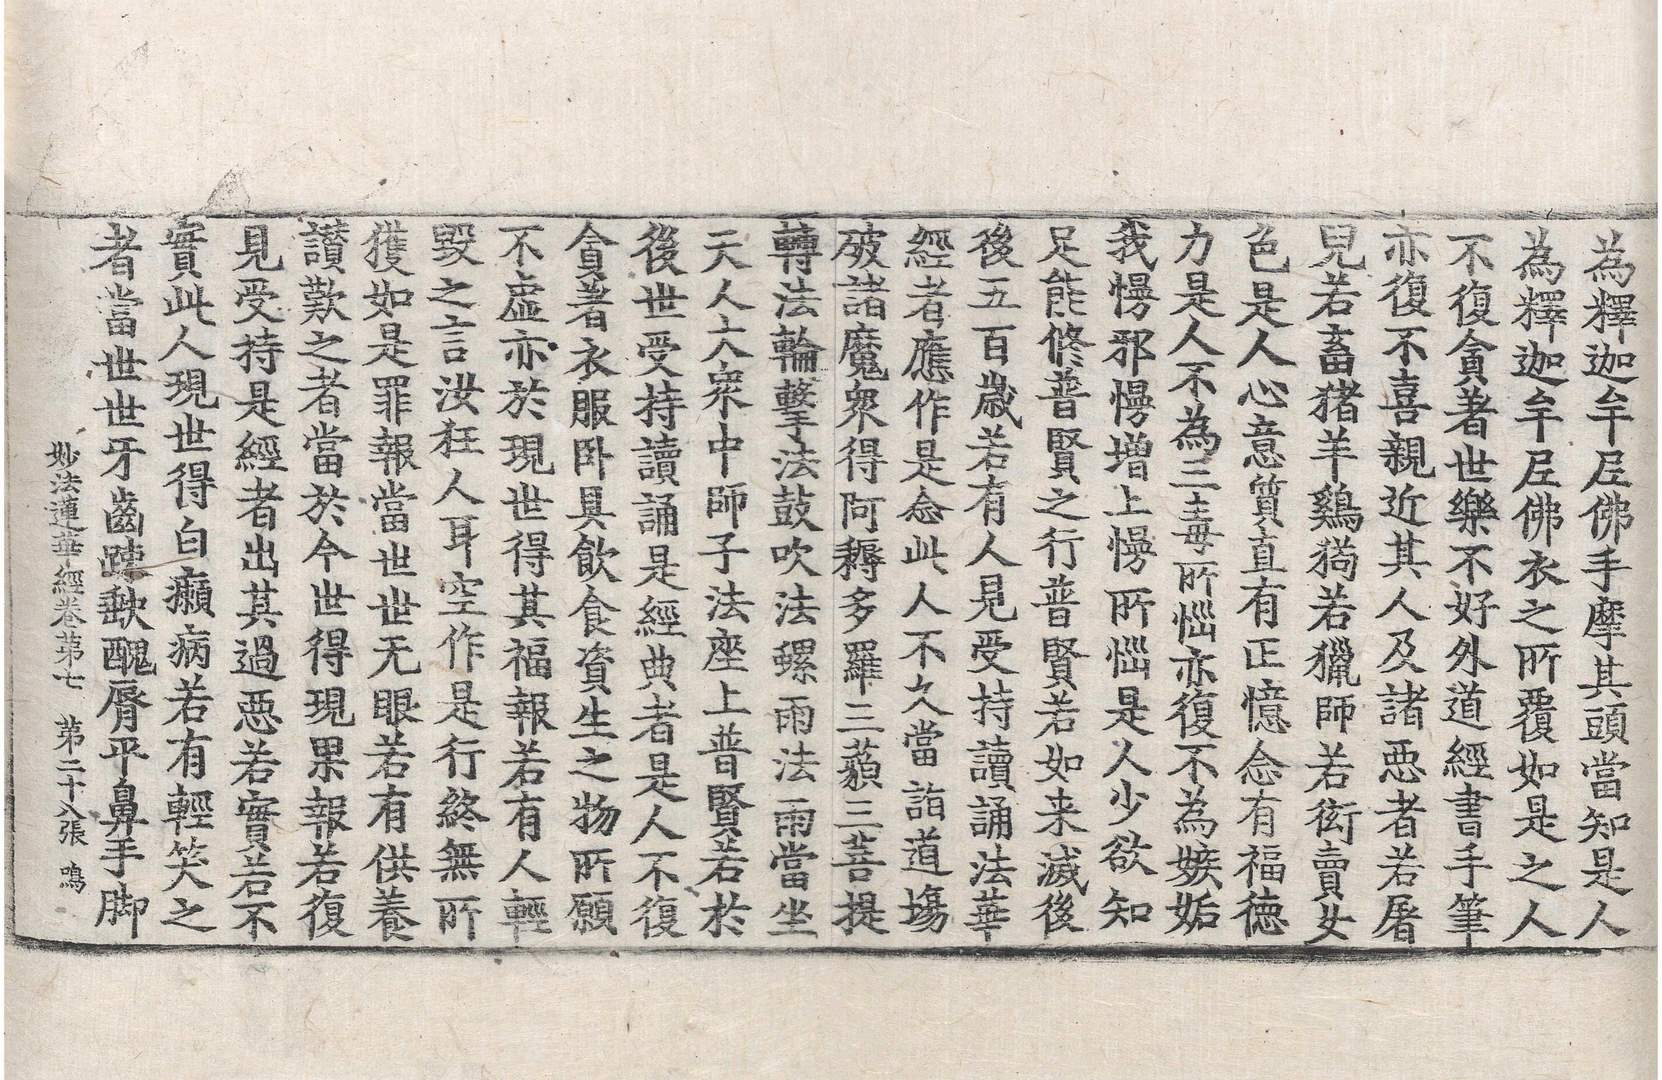 為釋迦牟尼佛手摩其頭當知是人
為釋迦牟尼佛衣之所覆如是之人
不復貪著世樂不好外道經書手筆
亦復不喜親近其人及諸惡者若屠
兒若畜猪羊鷄狗若獵師若衒賣女
色是人心意質直有正憶念有福德
力是人不為三毒所惱亦復不為嫉妬
我慢邪慢增上慢所惱是人少欲知
足能修普賢之行普賢若如来滅後
後五百歲若有人見受持讀誦法華
經者應作是念此人不久當詣道場
破諸魔衆得阿耨多羅三藐三菩提
轉法輪擊法鼓吹法螺雨法雨當坐
天人大衆中師子法座上普賢若於
後世受持讀誦是經典者是人不復
貪著衣服卧具飲食資生之物所願
不虛亦於現世得其福報若有人輕
毀之言汝狂人耳空作是行終無所
獲如是罪報當世世无眼若有供養
讃歎之者當於今世得現果報若復
見受持是經者出其過惡若實若不
實此人現世得白癩病若有輕笑之
者當世世牙齒踈缺醜脣平鼻手脚
妙法蓮華經卷苐七　苐二十八張　鳴